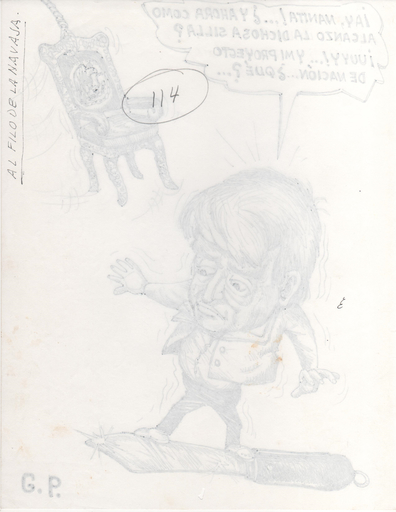 AL FILO DE LA NAVAJA.-
¡AY, NANITA!... ¿Y AHORA COMO
ALCANZO LA DICHOSA SILLA?
¡UUYY!... Y MI PROYECTO
DE NACION ¿QUE?...
114
G.P.